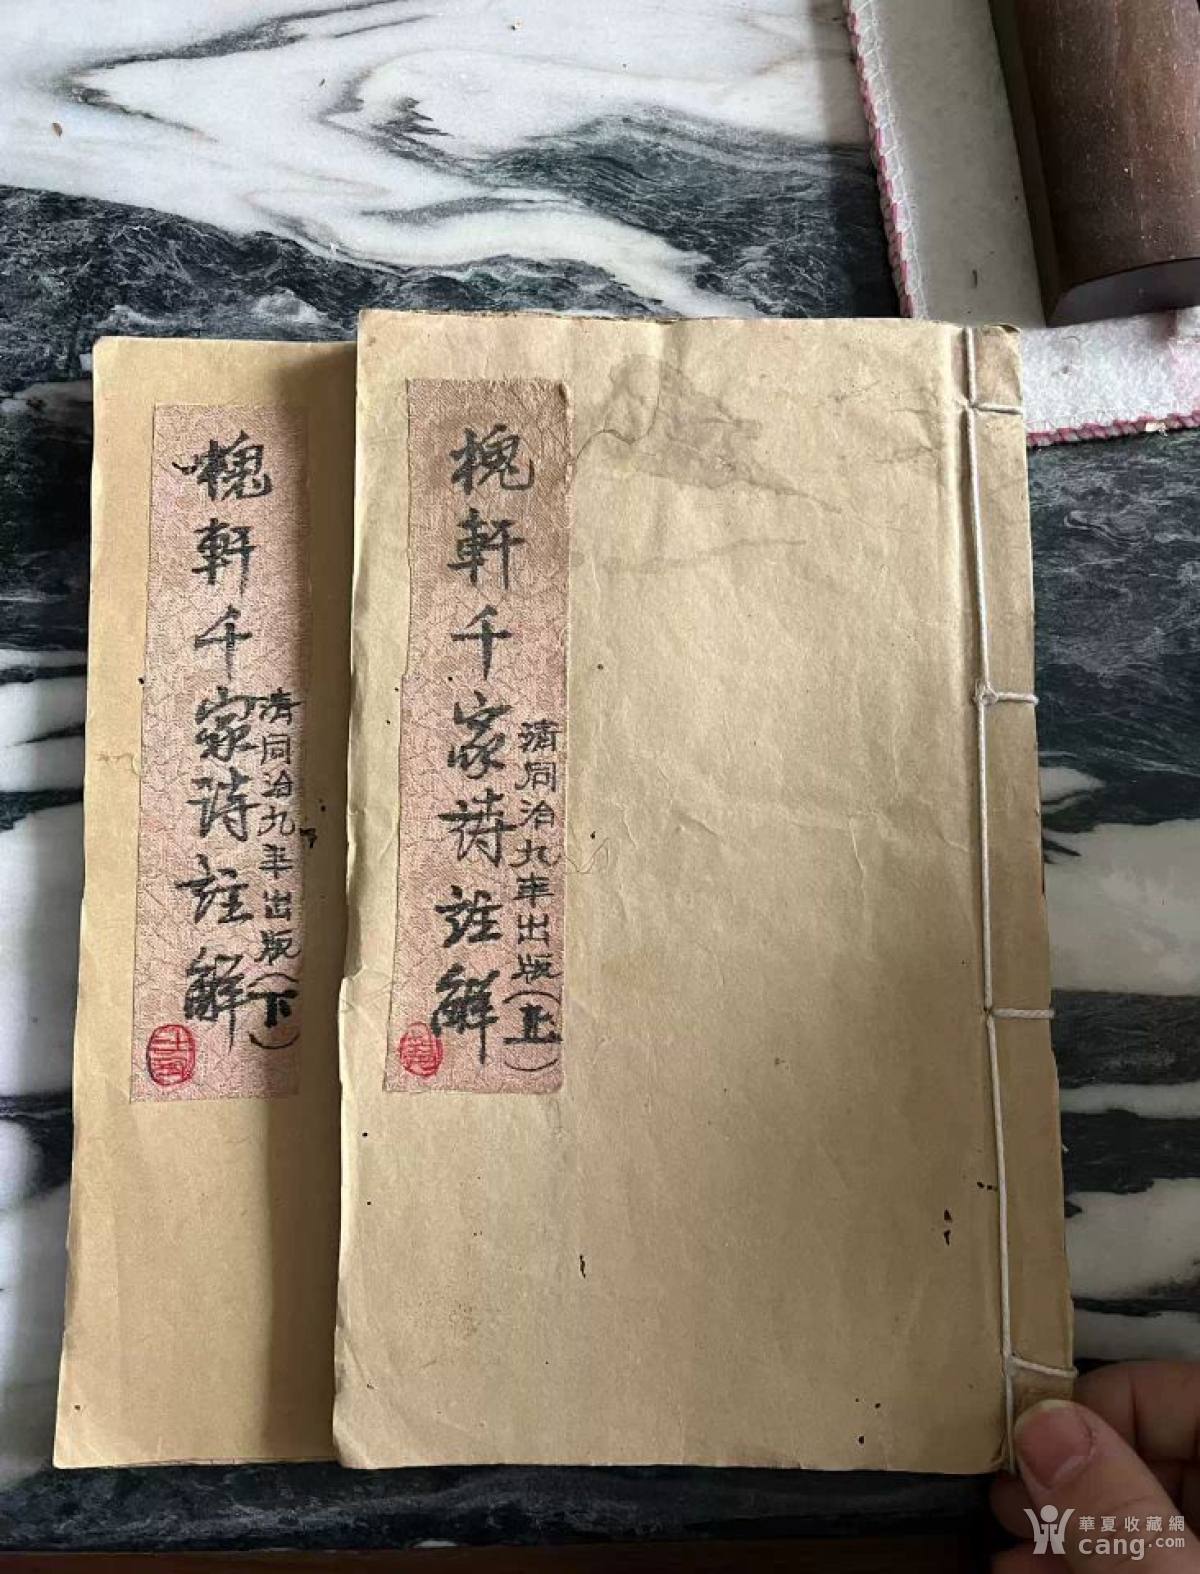 槐軒千家詩註解
清同治九年出版(上)
槐軒千家詩註解
清同治九年出版(下)
華夏收藏網
cang.com